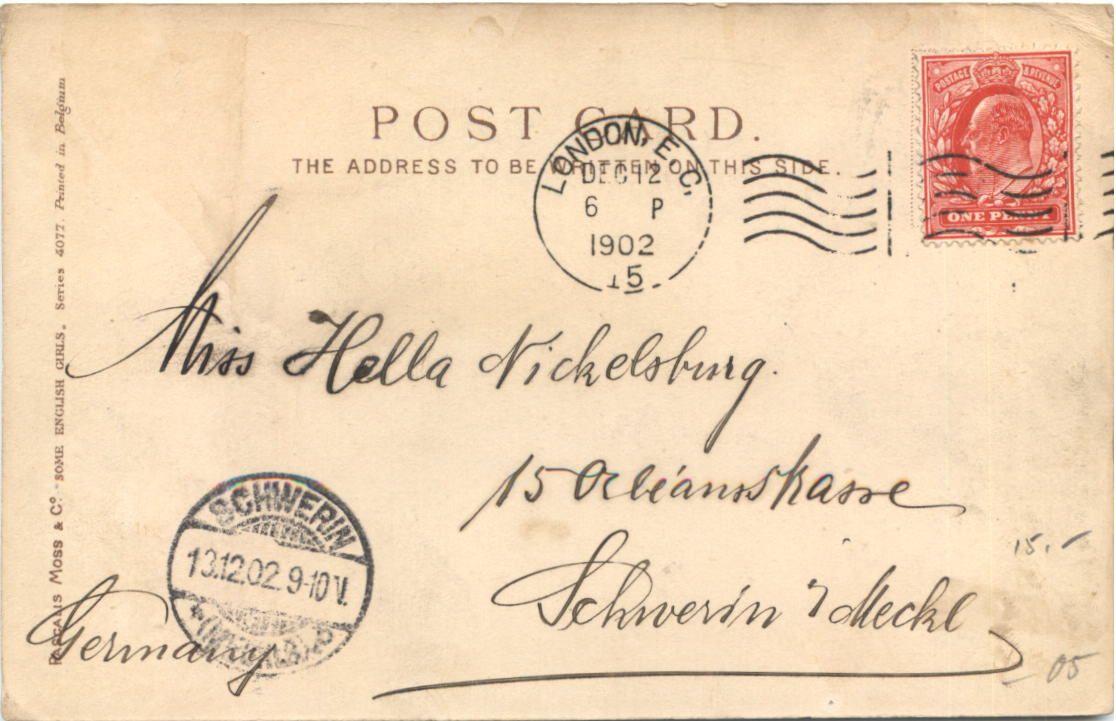 POST CARD.
THE ADDRESS TO BE WRITTEN ON THIS SIDE.
LONDON, E.C.
DEC 12
6 P
1902
15
POSTAGE & REVENUE
ONE PENNY
Moss & Co. SOME ENGLISH GIRLS. Series 4077. Printed in Belgium
Miss Hella Nickelsburg.
15
Schwerin i Meckl
Germany
SCHWERIN
13.12.02. 9-10 V.
15.-
05